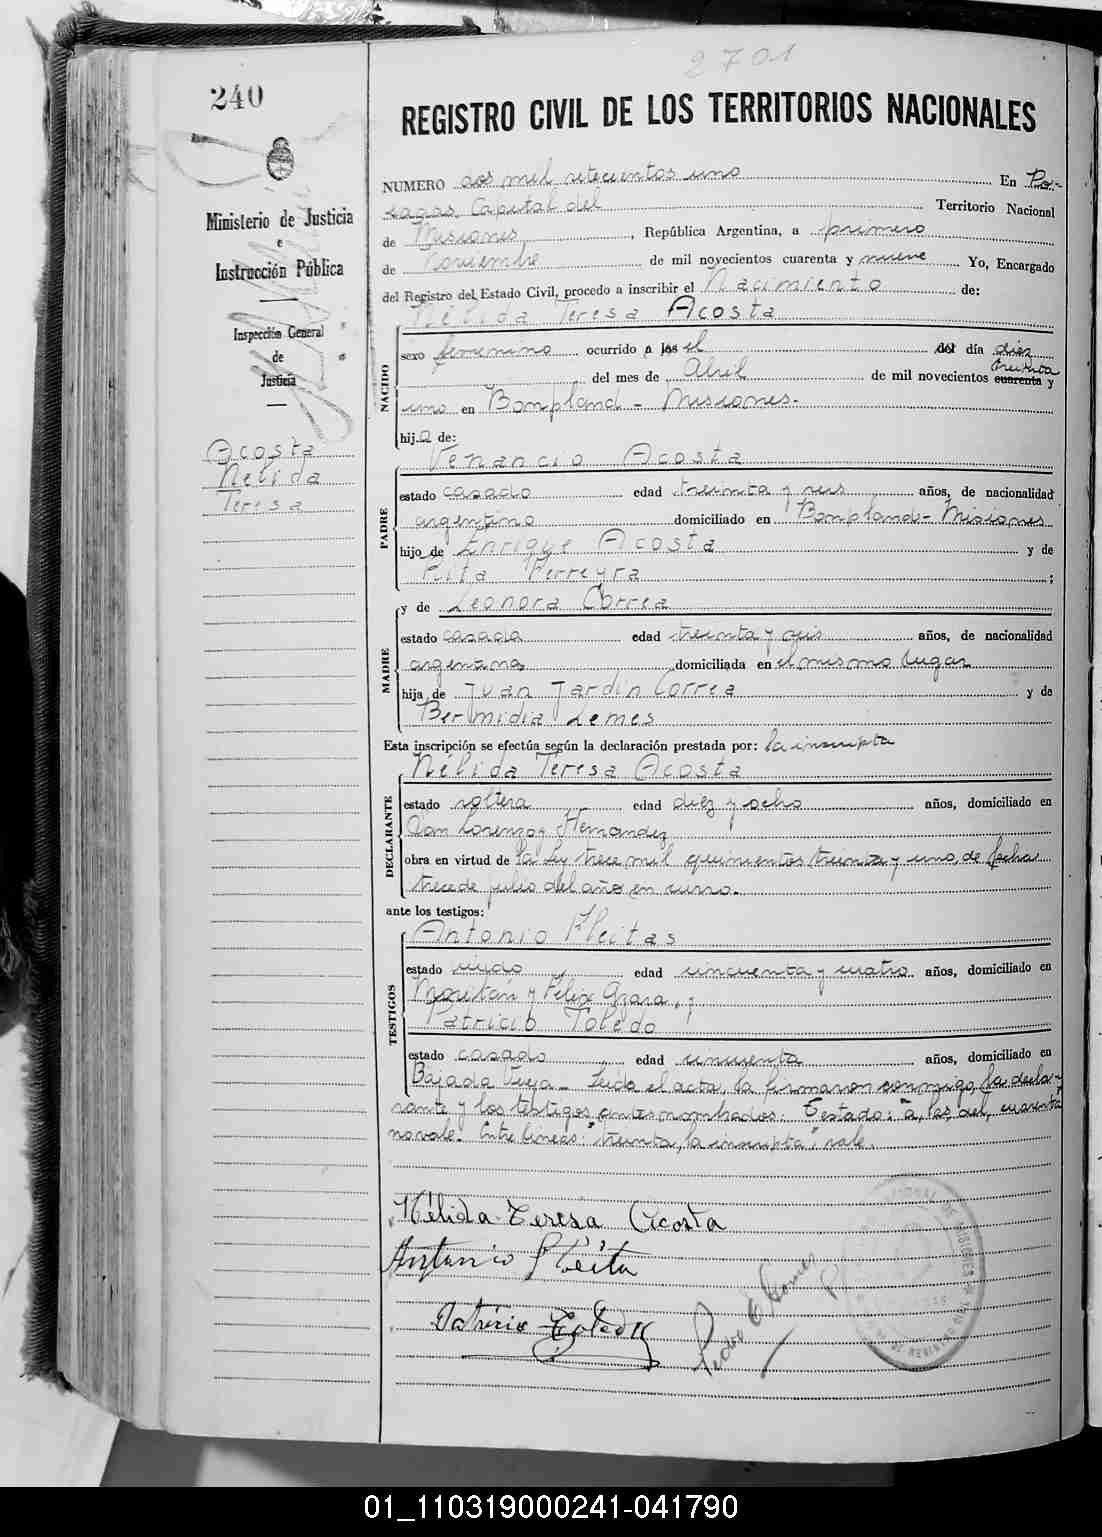 2701
240
REGISTRO CIVIL DE LOS TERRITORIOS NACIONALES
Ministerio de Justicia
e
Instrucción Pública
Inspección General
de
Justicia
Acosta
Nélida
Teresa
NUMERO dos mil setecientos uno En Po-
sadas, Capital del Territorio Nacional
de Misiones, República Argentina, a primero
de Noviembre de mil novecientos cuarenta y nueve Yo, Encargado
del Registro del Estado Civil, procedo a inscribir el Nacimiento de:
Nélida Teresa Acosta
NACIDO
sexo femenino ocurrido a las el del día diez
treinta
del mes de Abril de mil novecientos cuarenta y
uno en Bonpland - Misiones.
hija de:
Venancio Acosta
PADRE
estado casado edad treinta y seis años, de nacionalidad
argentino domiciliado en Bonpland - Misiones
hijo de Enrique Acosta y de
Rita Ferreyra;
y de Leonora Correa
MADRE
estado casada edad treinta y seis años, de nacionalidad
argentina domiciliada en el mismo lugar
hija de Juan Jardin Correa y de
Bermidia Lemes
Esta inscripción se efectúa según la declaración prestada por: la inscripta
Nélida Teresa Acosta
DECLARANTE
estado soltera edad diez y ocho años, domiciliado en
San Lorenzo y Hernandez
obra en virtud de la Ley trece mil quinientos treinta y uno, de fecha
trece de julio del año en curso.
ante los testigos:
Antonio Fleitas
TESTIGOS
estado viudo edad cincuenta y cuatro años, domiciliado en
y Felix Azara, y
Patricio Toledo
estado casado edad cincuenta años, domiciliado en
Bajada Vieja - Leída el acta, la firmaron conmigo, la decla-
rante y los testigos antes nombrados. Testado: "a, las, del, cuarenta"
no vale. Entre líneas: "treinta, la inscripta", vale.
Nélida Teresa Acosta
Antonio Fleita
Patricio Toledo
Pedro E Gomez
01_110319000241-041790